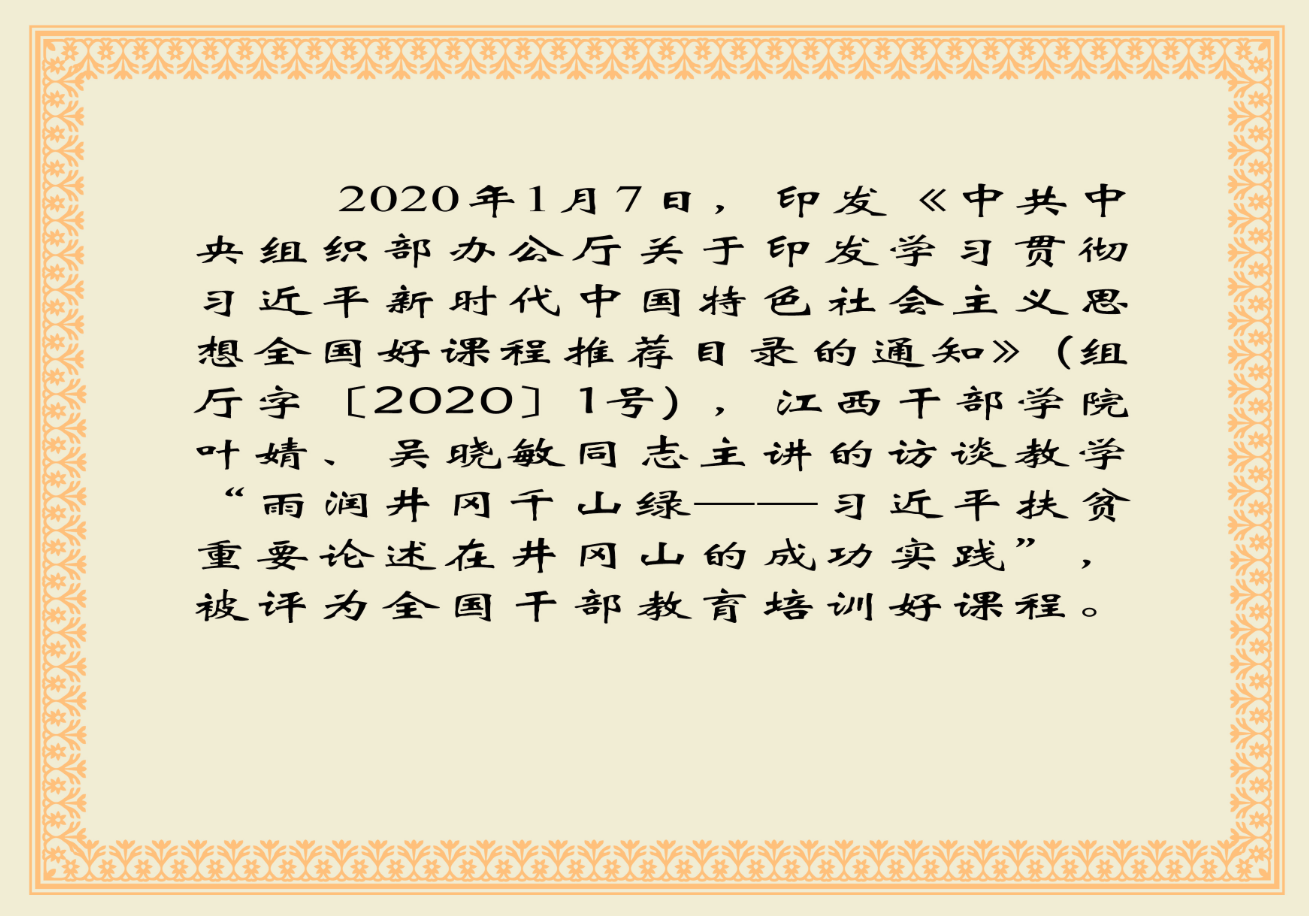 2020年1月7日，印发《中共中
央组织部办公厅关于印发学习贯彻
习近平新时代中国特色社会主义思
想全国好课程推荐目录的通知》（组
厅字〔2020〕1号），江西干部学院
叶婧、吴晓敏同志主讲的访谈教学
“雨润井冈千山绿——习近平扶贫
重要论述在井冈山的成功实践”，
被评为全国干部教育培训好课程。